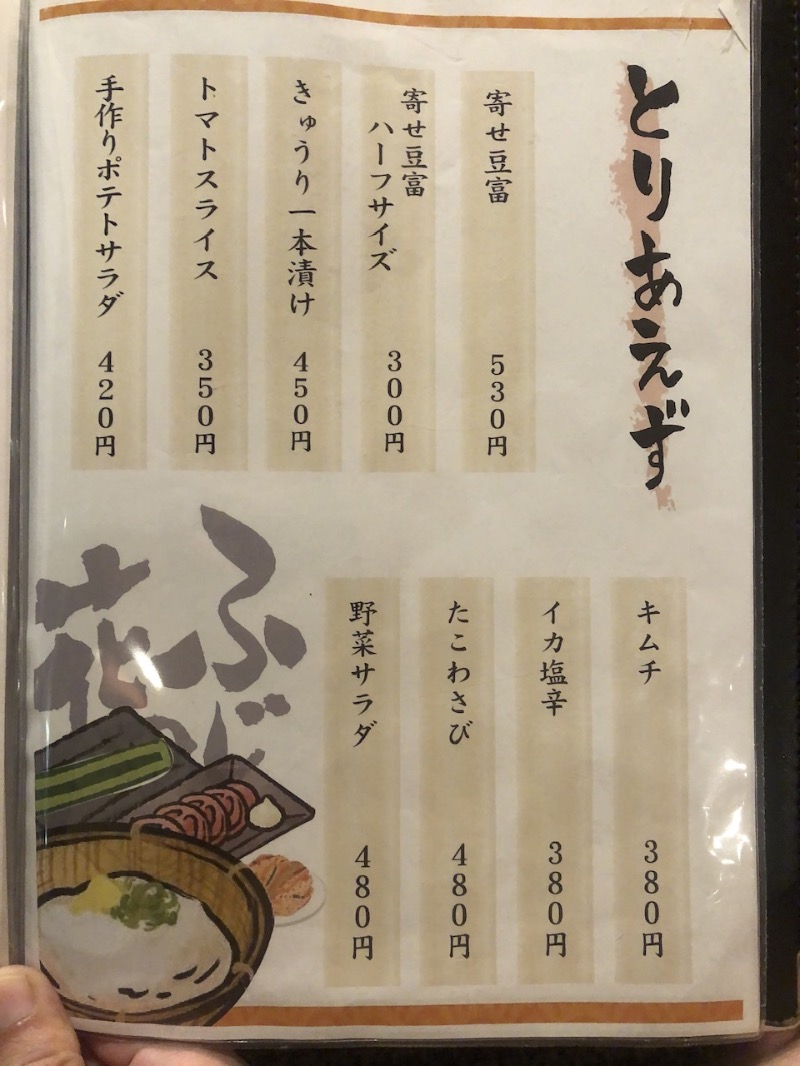 とりあえず
寄せ豆富
530円
寄せ豆富
ハーフサイズ
300円
きゅうり一本漬け
450円
トマトスライス
350円
手作りポテトサラダ
420円
キムチ
380円
イカ塩辛
380円
たこわさび
480円
野菜サラダ
480円
ふじ
花